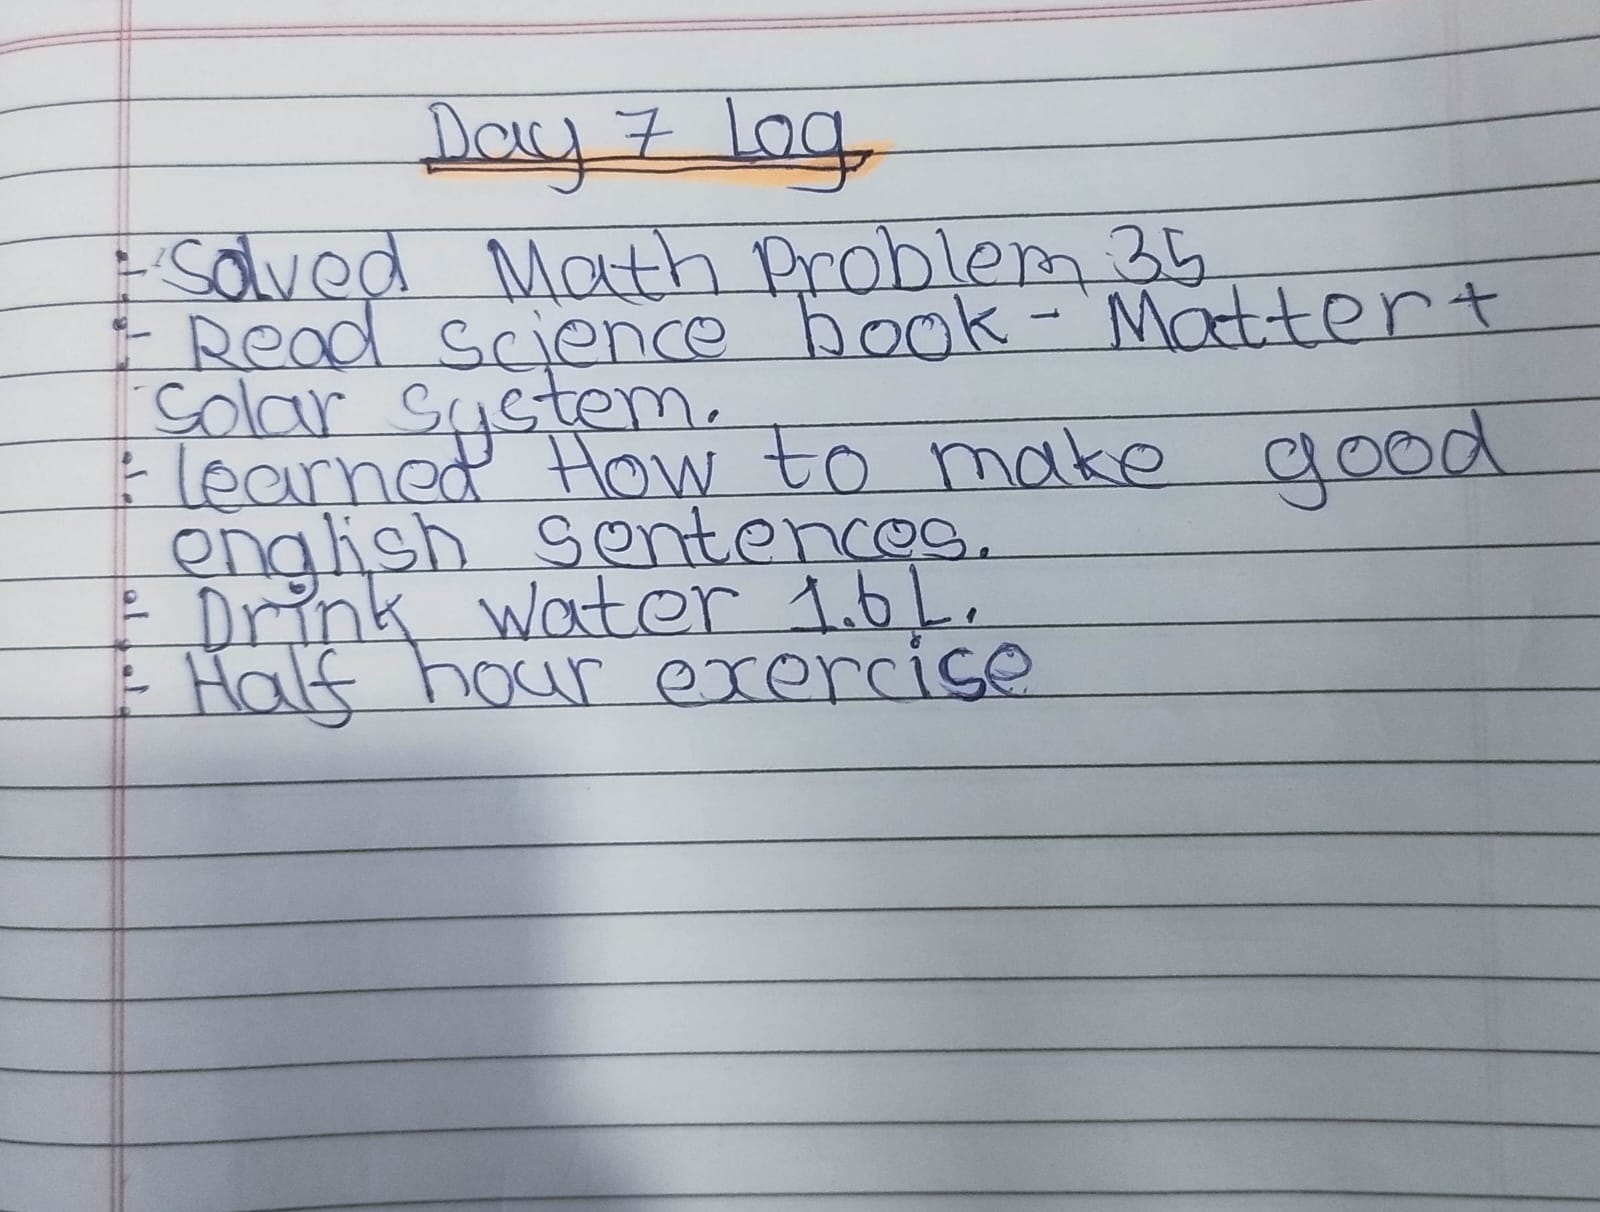 Day 7 Log
:- Solved Math Problem 35
:- Read science book - Matter +
Solar system.
:- learned How to make good
english sentences.
:- Drink water 1.6L.
:- Half hour exercise